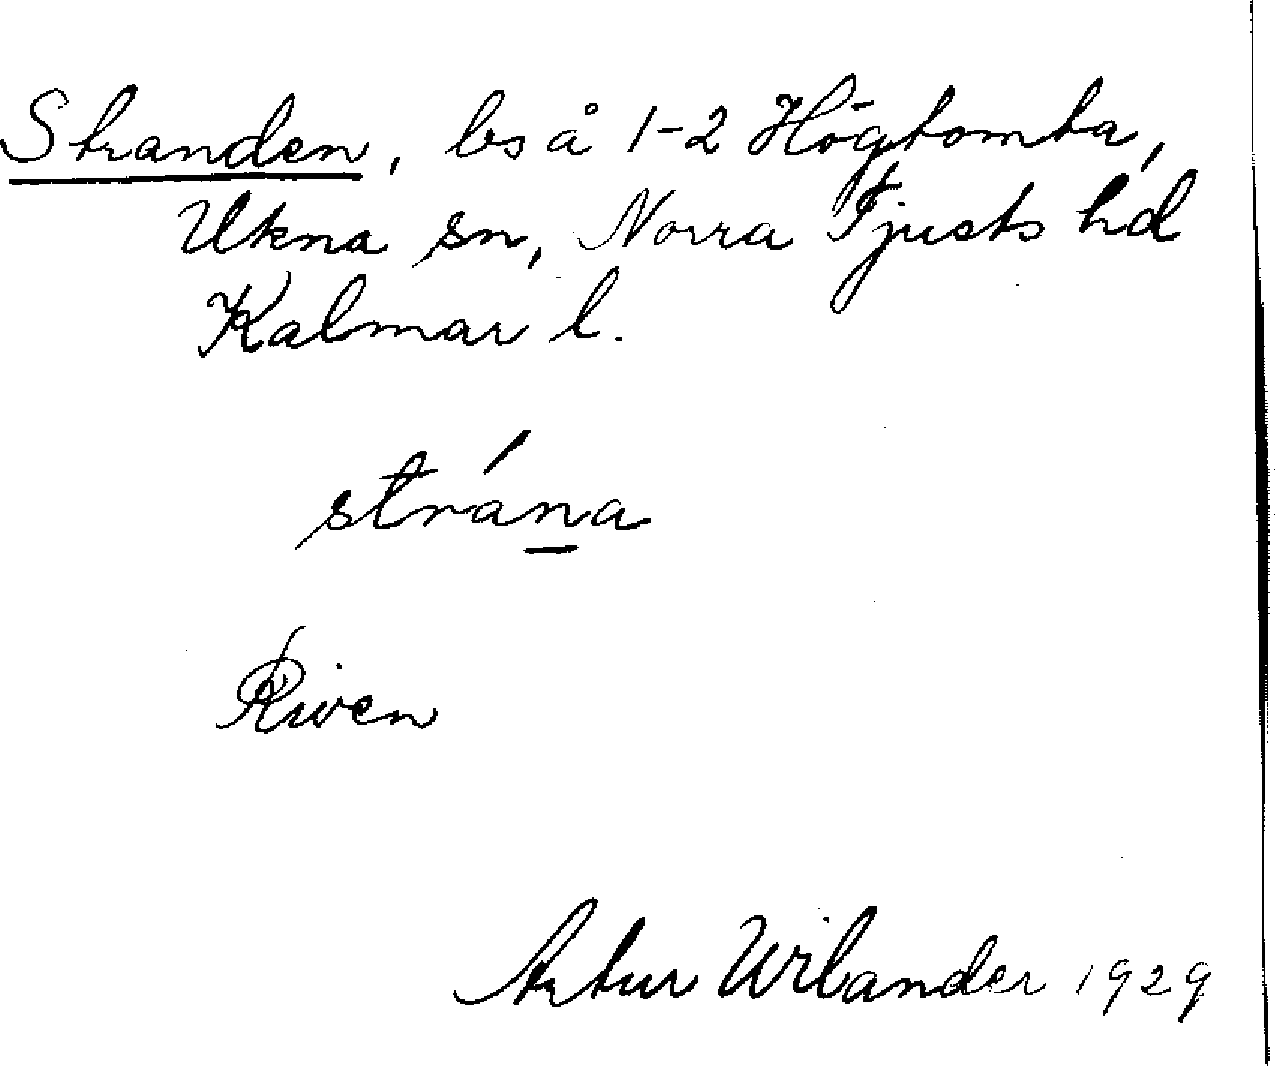 Stranden, ls å 1-2 Högtomta,
Ukna sn, Norra Tjusts hd
Kalmar l.
strána
Riven
Artur Wilander 1929